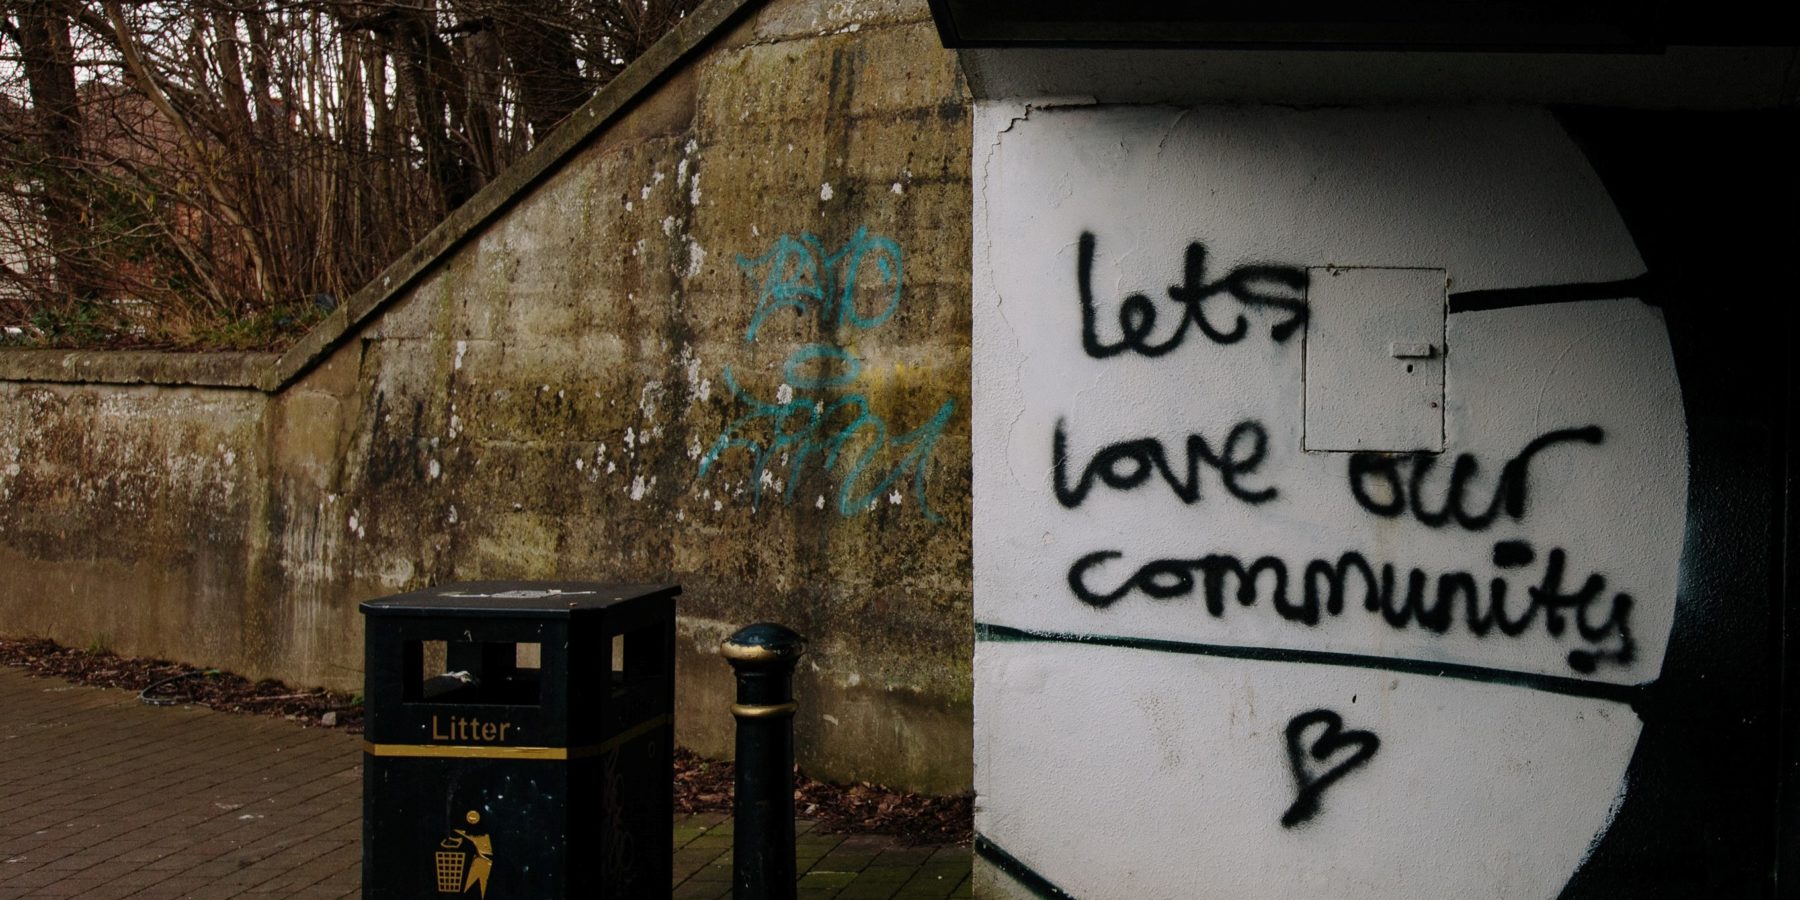 Lets
love our
community
Litter